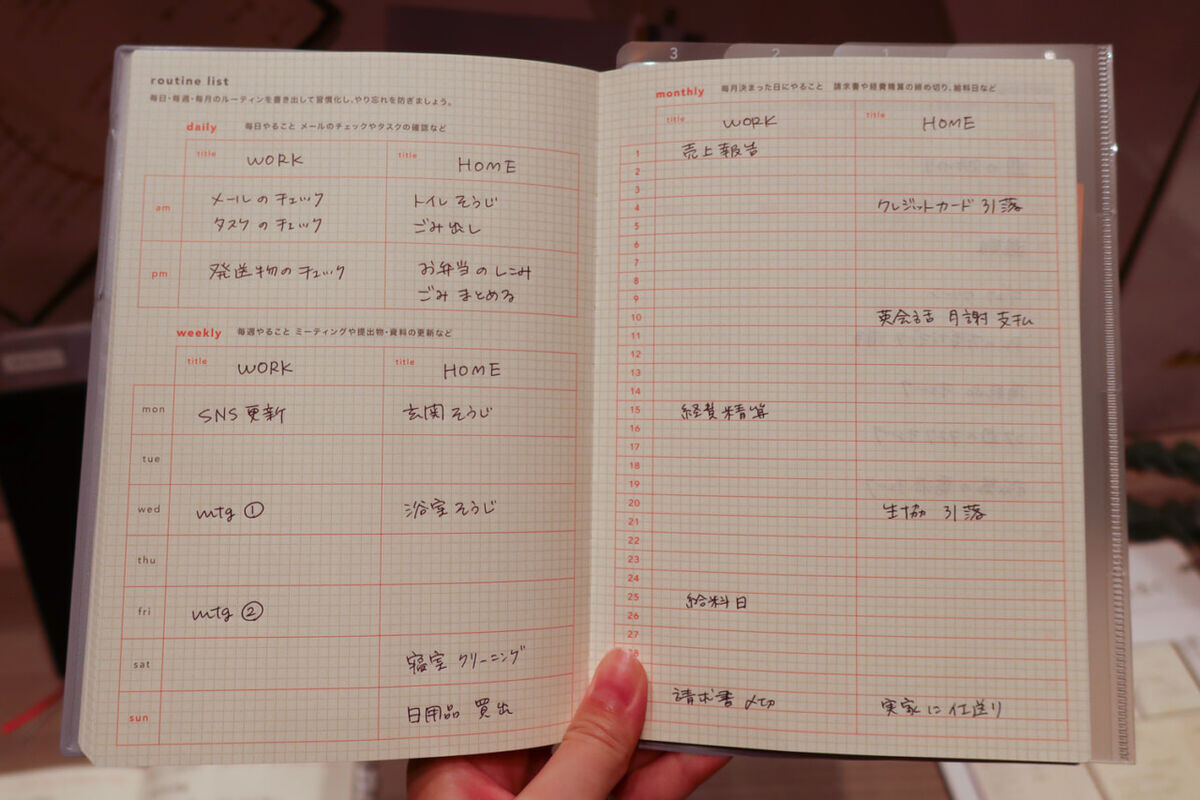 routine list
毎日・毎週・毎月のルーティンを書き出して習慣化し、やり忘れを防ぎましょう。
daily 毎日やること メールのチェックやタスクの確認など
title WORK title HOME
am メールのチェック トイレそうじ
タスクのチェック ごみ出し
pm 発送物のチェック お弁当のしこみ
ごみまとめる
weekly 毎週やること ミーティングや提出物・資料の更新など
title WORK title HOME
mon SNS更新 玄関そうじ
tue
wed mtg ① 浴室そうじ
thu
fri mtg ②
sat 寝室クリーニング
sun 日用品 買出
3 2 1
monthly 毎月決まった日にやること 請求書や経費精算の締め切り、給料日など
title WORK title HOME
1 売上報告
2
3
4 クレジットカード 引落
5
6
7
8
9
10 英会話 月謝 支払
11
12
13
14
15 経費精算
16
17
18
19
20 生協 引落
21
22
23
24
25 給料日
26
27
28
請求書 〆切 実家に仕送り